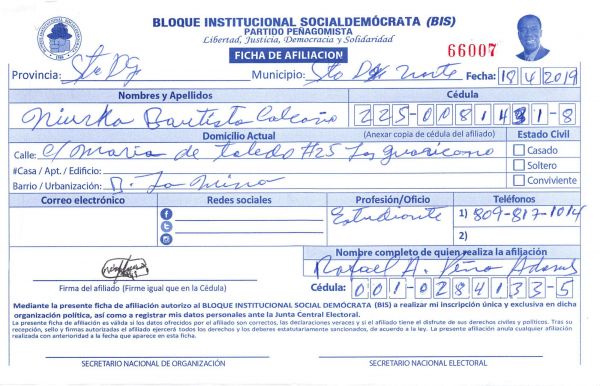 BLOQUE INSTITUCIONAL SOCIALDEMÓCRATA (BIS)
PARTIDO PEÑAGOMISTA
Libertad, Justicia, Democracia y Solidaridad
FICHA DE AFILIACION
66007
Provincia: Sto Dgo Municipio: Sto Dgo Norte Fecha: 18/4/2019
Nombres y Apellidos Cédula
Niurka Bautista 225-0081431-8
Domicilio Actual (Anexar copia de cédula del afiliado) Estado Civil
Calle: C/ Maria de Toledo #25 Los Guaricano Casado
#Casa / Apt. / Edificio: Soltero
Barrio / Urbanización: B. La Mina Conviviente
Correo electrónico Redes sociales Profesión/Oficio Teléfonos
Estudiante 1) 809-817-1014
2)
Nombre completo de quien realiza la afiliación
Rafael A. Peña
Firma del afiliado (Firme igual que en la Cédula) Cédula: 001-0284133-5
Mediante la presente ficha de afiliación autorizo al BLOQUE INSTITUCIONAL SOCIAL DEMÓCRATA (BIS) a realizar mi inscripción única y exclusiva en dicha
organización política, así como a registrar mis datos personales ante la Junta Central Electoral.
La presente ficha de afiliación es válida si los datos ofrecidos por el afiliado son correctos, las declaraciones veraces y si el afiliado tiene el disfrute de sus derechos civiles y políticos. Tras su
recepción, sello y firmas autorizadas el afiliado ejercerá todos los derechos y los deberes estatutariamente sancionados, de acuerdo a la ley. La presente afiliación anula cualquier afiliación
realizada con anterioridad a la fecha que aparece en esta ficha.
SECRETARIO NACIONAL DE ORGANIZACIÓN SECRETARIO NACIONAL ELECTORAL